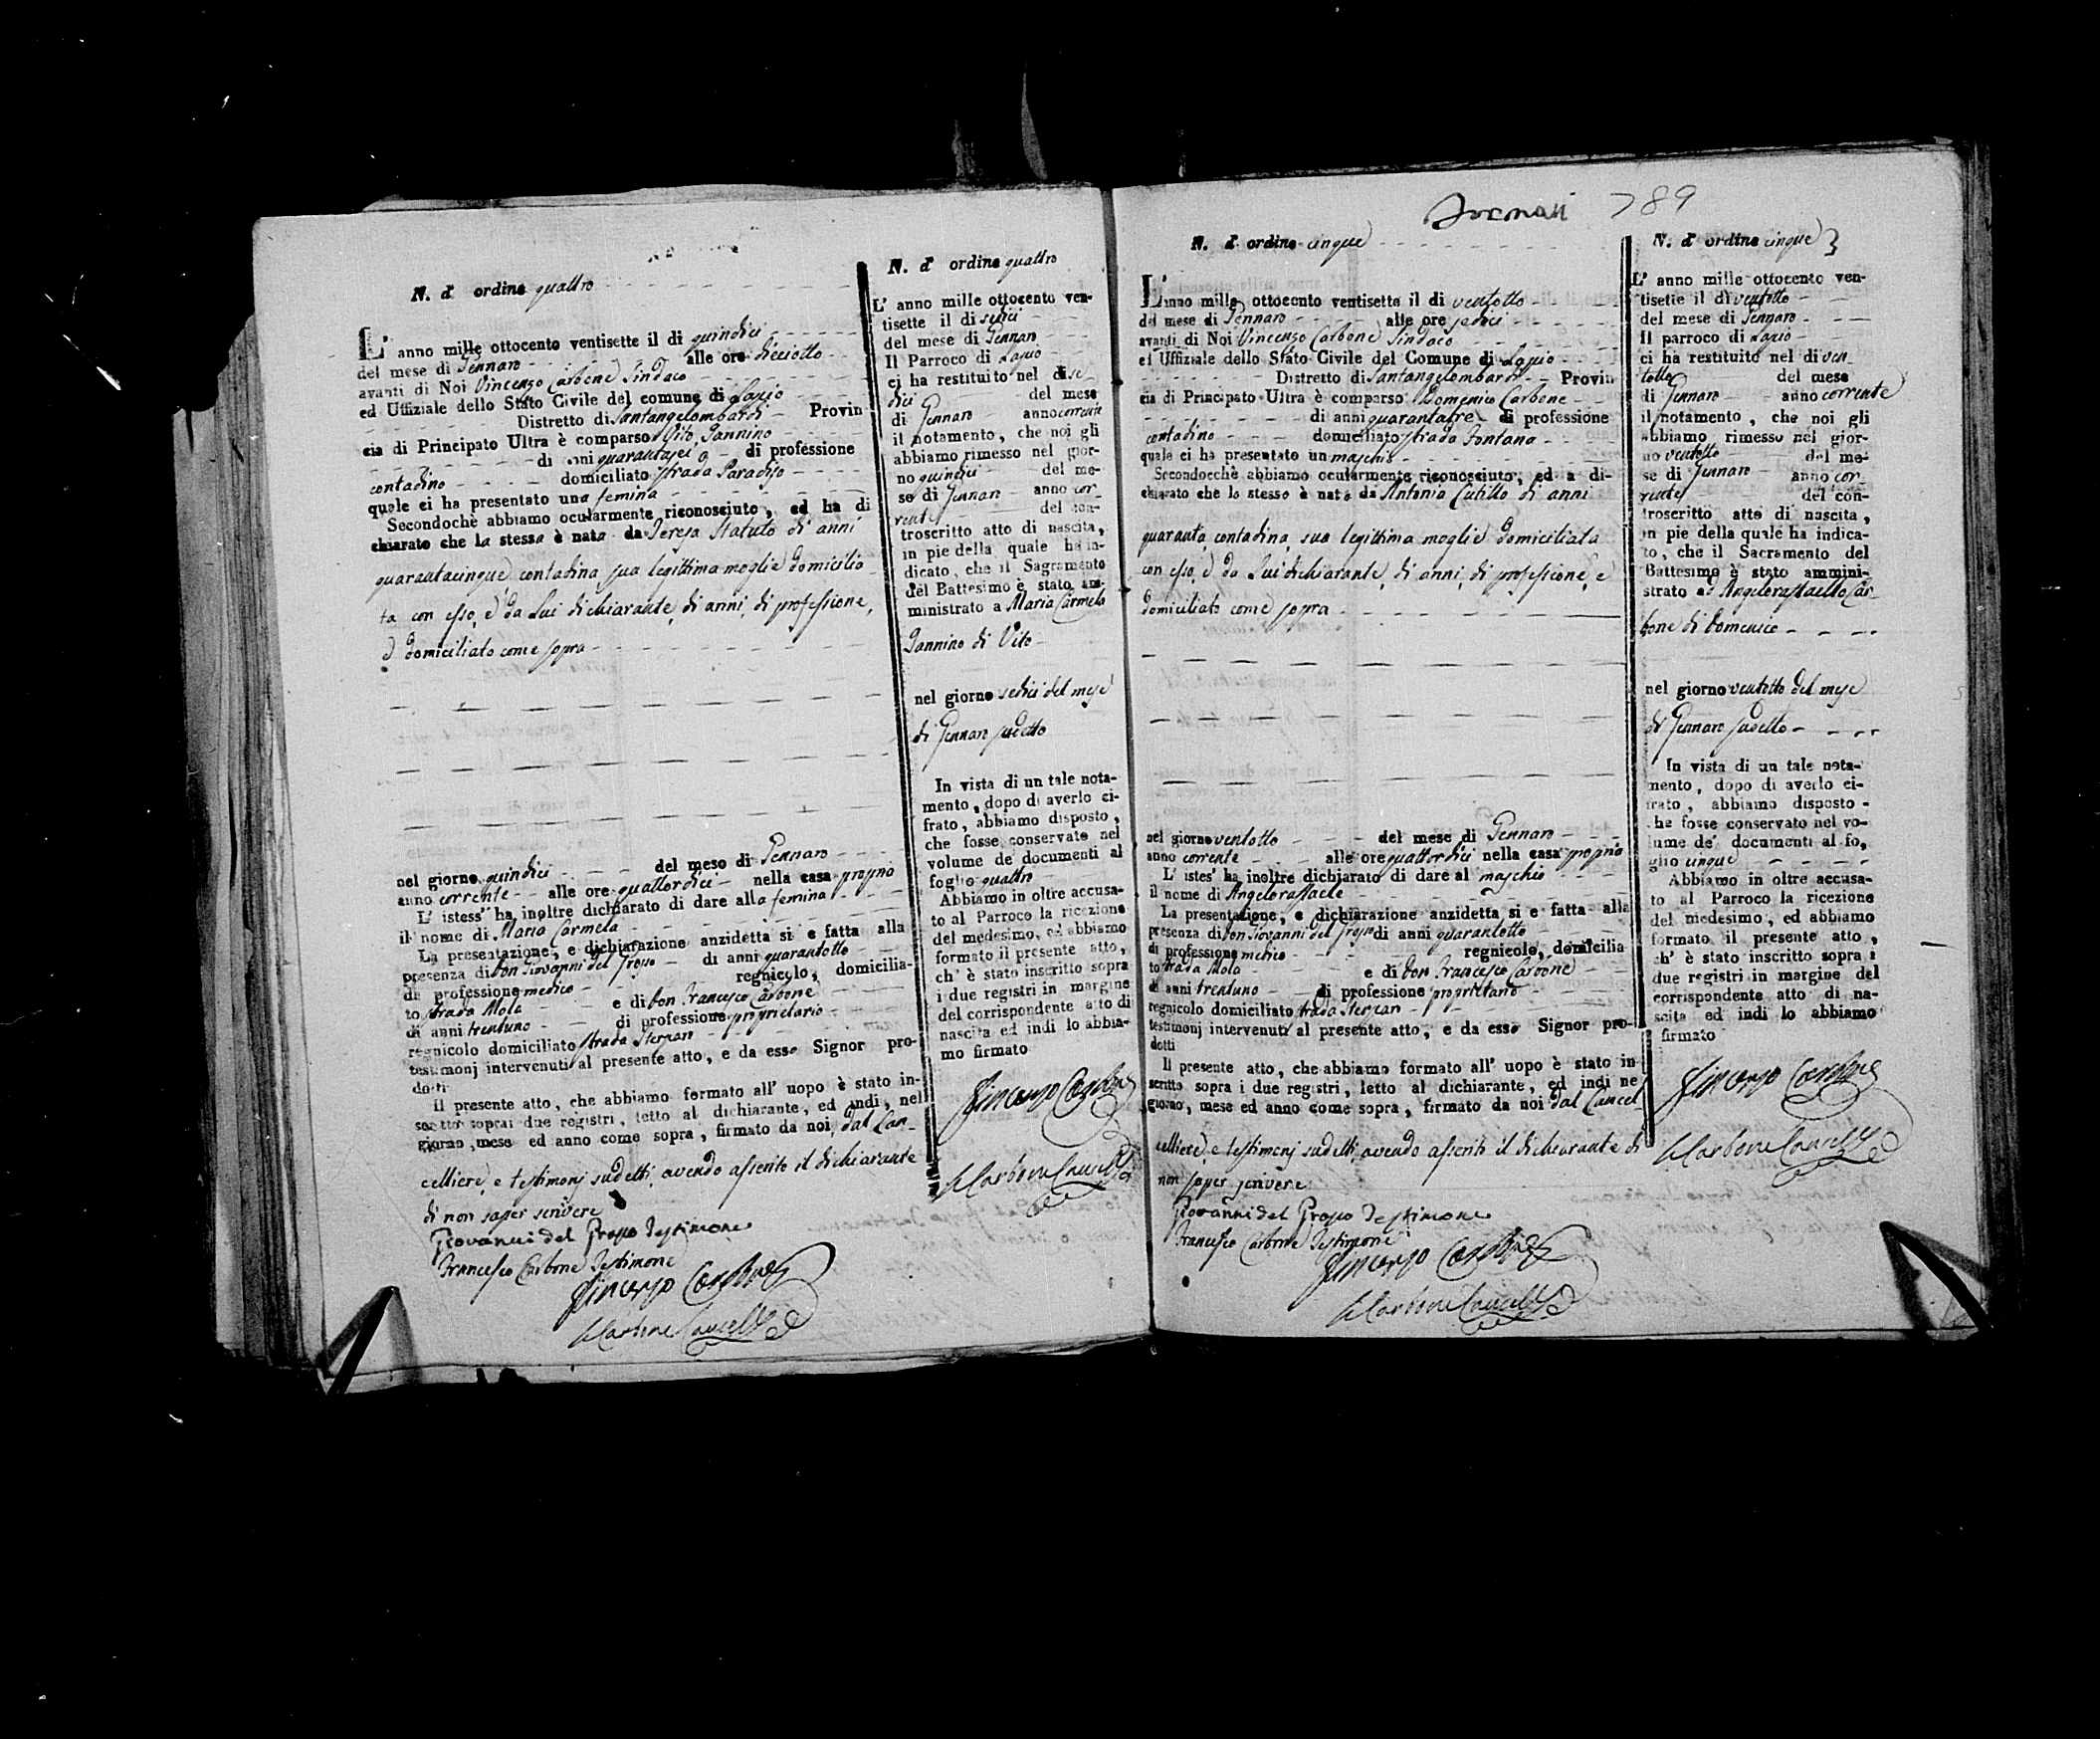 N. d' ordine quattro
L' anno mille ottocento ventisette il di quindici
del mese di Gennaro alle ore dieciotto
avanti di Noi Vincenzo Carbone Sindaco
ed Uffiziale dello Stato Civile del comune di Lapio
Distretto di Santangelombardi Provin
cia di Principato Ultra è comparso Vito Iannino
di anni quarantasei di professione
contadino domiciliato strada Paradiso
quale ci ha presentato una femina
Secondochè abbiamo ocularmente riconosciuto, ed ha di
chiarato che la stessa è nata da Teresa Statuto di anni
quarantacinque contadina sua legittima moglie domicilia
ta con esso, e da Lui dichiarante, di anni, di professione,
e domiciliato come sopra
nel giorno quindici del mese di Gennaro
anno corrente alle ore quattordici nella casa propria
L' istess' ha inoltre dichiarato di dare alla femina
il nome di Maria Carmela
La presentazione, e dichiarazione anzidetta si è fatta alla
presenza di Don Giovanni del Grosso di anni quarantotto
di professione medico regnicolo, domicilia-
to strada Mola e di Don Francesco Carbone
di anni trentuno di professione proprietario
regnicolo domiciliato strada Sterpan
testimonj intervenuti al presente atto, e da esso Signor pro-
dotti
Il presente atto, che abbiamo formato all' uopo è stato in-
scritto sopra i due registri, letto al dichiarante, ed indi, nel
giorno, mese ed anno come sopra, firmato da noi, dal Can-
celliere, e testimonj sudetti, avendo asserito il dichiarante
di non saper scrivere
Giovanni del Grosso Testimone
Francesco Carbone Testimone
Vincenzo Carbone
Carbone Cancell.e
N. d' ordine quattro
L' anno mille ottocento ven-
tisette il di sedici
del mese di Gennaro
Il Parroco di Lapio
ci ha restituito nel di se-
dici del mese
di Gennaro anno corrente
il notamento, che noi gli
abbiamo rimesso nel gior-
no quindici del me-
se di Gennaro anno cor-
rente del con-
troscritto atto di nascita,
in pie della quale ha in-
dicato, che il Sagramento
del Battesimo è stato am-
ministrato a Maria Carmela
Iannino di Vito
nel giorno sedici del mese
di Gennaro sudetto
In vista di un tale nota-
mento, dopo di averlo ci-
frato, abbiamo disposto,
che fosse conservato nel
volume de' documenti al
foglio quattro
Abbiamo in oltre accusa-
to al Parroco la ricezione
del medesimo, ed abbiamo
formato il presente atto,
ch' è stato inscritto sopra
i due registri in margine
del corrispondente atto di
nascita ed indi lo abbia-
mo firmato
Vincenzo Carbone
Carbone Cancell.e
789
N. d' ordine cinque
L' anno mille ottocento ventisette il di ventotto
del mese di Gennaro alle ore sedici
avanti di Noi Vincenzo Carbone Sindaco
ed Uffiziale dello Stato Civile del Comune di Lapio
Distretto di Santangelombardi Provin
cia di Principato Ultra è comparso Domenico Carbone
di anni quarantatre di professione
contadino domiciliato strada Fontana
quale ci ha presentato un maschio
Secondocchè abbiamo ocularmente riconosciuto, ed a di-
chiarato che lo stesso è nato da Antonia Cutillo di anni
quaranta contadina, sua legittima moglie domiciliata
con esso, e da Lui dichiarante, di anni, di professione, e
domiciliato come sopra
nel giorno ventotto del mese di Gennaro
anno corrente alle ore quattordici nella casa propria
L' istes' ha inoltre dichiarato di dare al maschio
il nome di Angeloraffaele
La presentazione, e dichiarazione anzidetta si e fatta alla
presenza di Don Giovanni del Grosso di anni quarantotto
di professione medico regnicolo, domicilia
to strada Mola e di Don Francesco Carbone
di anni trentuno di professione proprietario
regnicolo domiciliato strada Sterpan
testimonj intervenuti al presente atto, e da esso Signor pro-
dotti
Il presente atto, che abbiamo formato all' uopo è stato in
scritto sopra i due registri, letto al dichiarante, ed indi ne
giorno, mese ed anno come sopra, firmato da noi dal Cancel-
celliere, e testimonj sudetti avendo asserito il dichiarante di
non saper scrivere
Giovanni del Grosso Testimone
Francesco Carbone Testimone
Vincenzo Carbone
Carbone Cancell.e
N. d' ordine cinque
L' anno mille ottocento ven-
tisette il di ventotto
del mese di Gennaro
Il parroco di Lapio
ci ha restituito nel di ven
totto del mese
di Gennaro anno corrente
il notamento, che noi gli
abbiamo rimesso nel gior-
no ventotto del me-
se di Gennaro anno cor-
rente del con-
troscritto atto di nascita,
in pie della quale ha indica-
to, che il Sacramento del
Battesimo è stato ammini-
strato ad Angeloraffaello Car-
bone di Domenico
nel giorno ventotto del mese
di Gennaro sudetto
In vista di un tale nota-
mento, dopo di averlo ci-
frato, abbiamo disposto -
che fosse conservato nel vo-
lume de' documenti al fo,
glio cinque
Abbiamo in oltre accusa-
to al Parroco la ricezione
del medesimo, ed abbiamo
formato il presente atto,
ch' è stato inscritto sopra i
due registri in margine del
corrispondente atto di na-
scita ed indi lo abbiamo
firmato
Vincenzo Carbone
Carbone Cancell.e